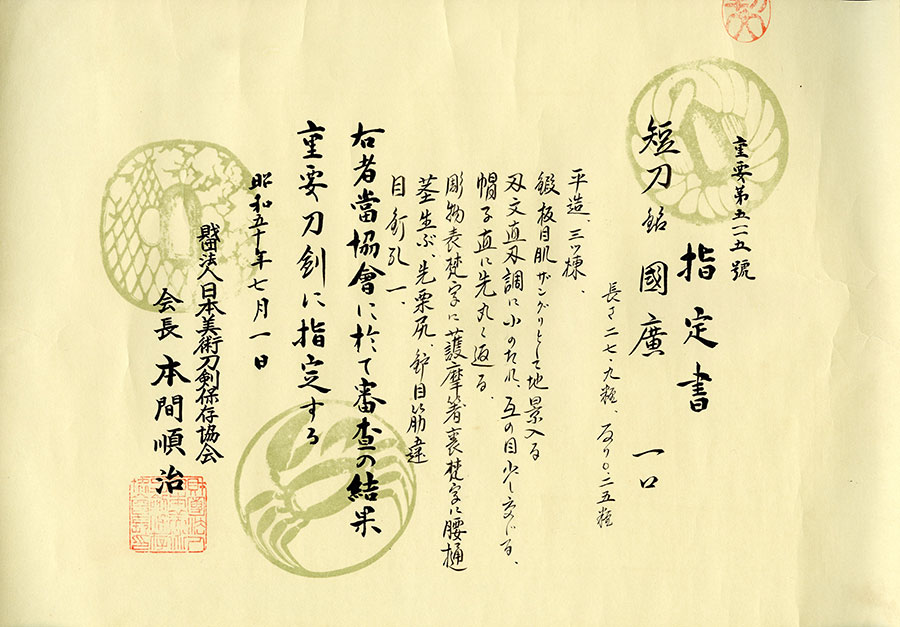 重要第五一一五號
指定書
短刀 銘 國廣 一口
長サ二七・九糎、反り〇・二五糎
平造、三ツ棟、
鍛 板目肌ザングリとして地景入る
刃文直刃調に小のたれ、互の目少し交じる、
帽子 直に先丸く返る。
彫物表梵字に護摩箸裏梵字に腰樋
茎生ぶ、先栗尻、鑢目筋違
目釘孔一、
右者當協會に於て審査の結果
重要刀剣に指定する
昭和五十年七月一日
財団法人日本美術刀剣保存協会
会長 本間順治